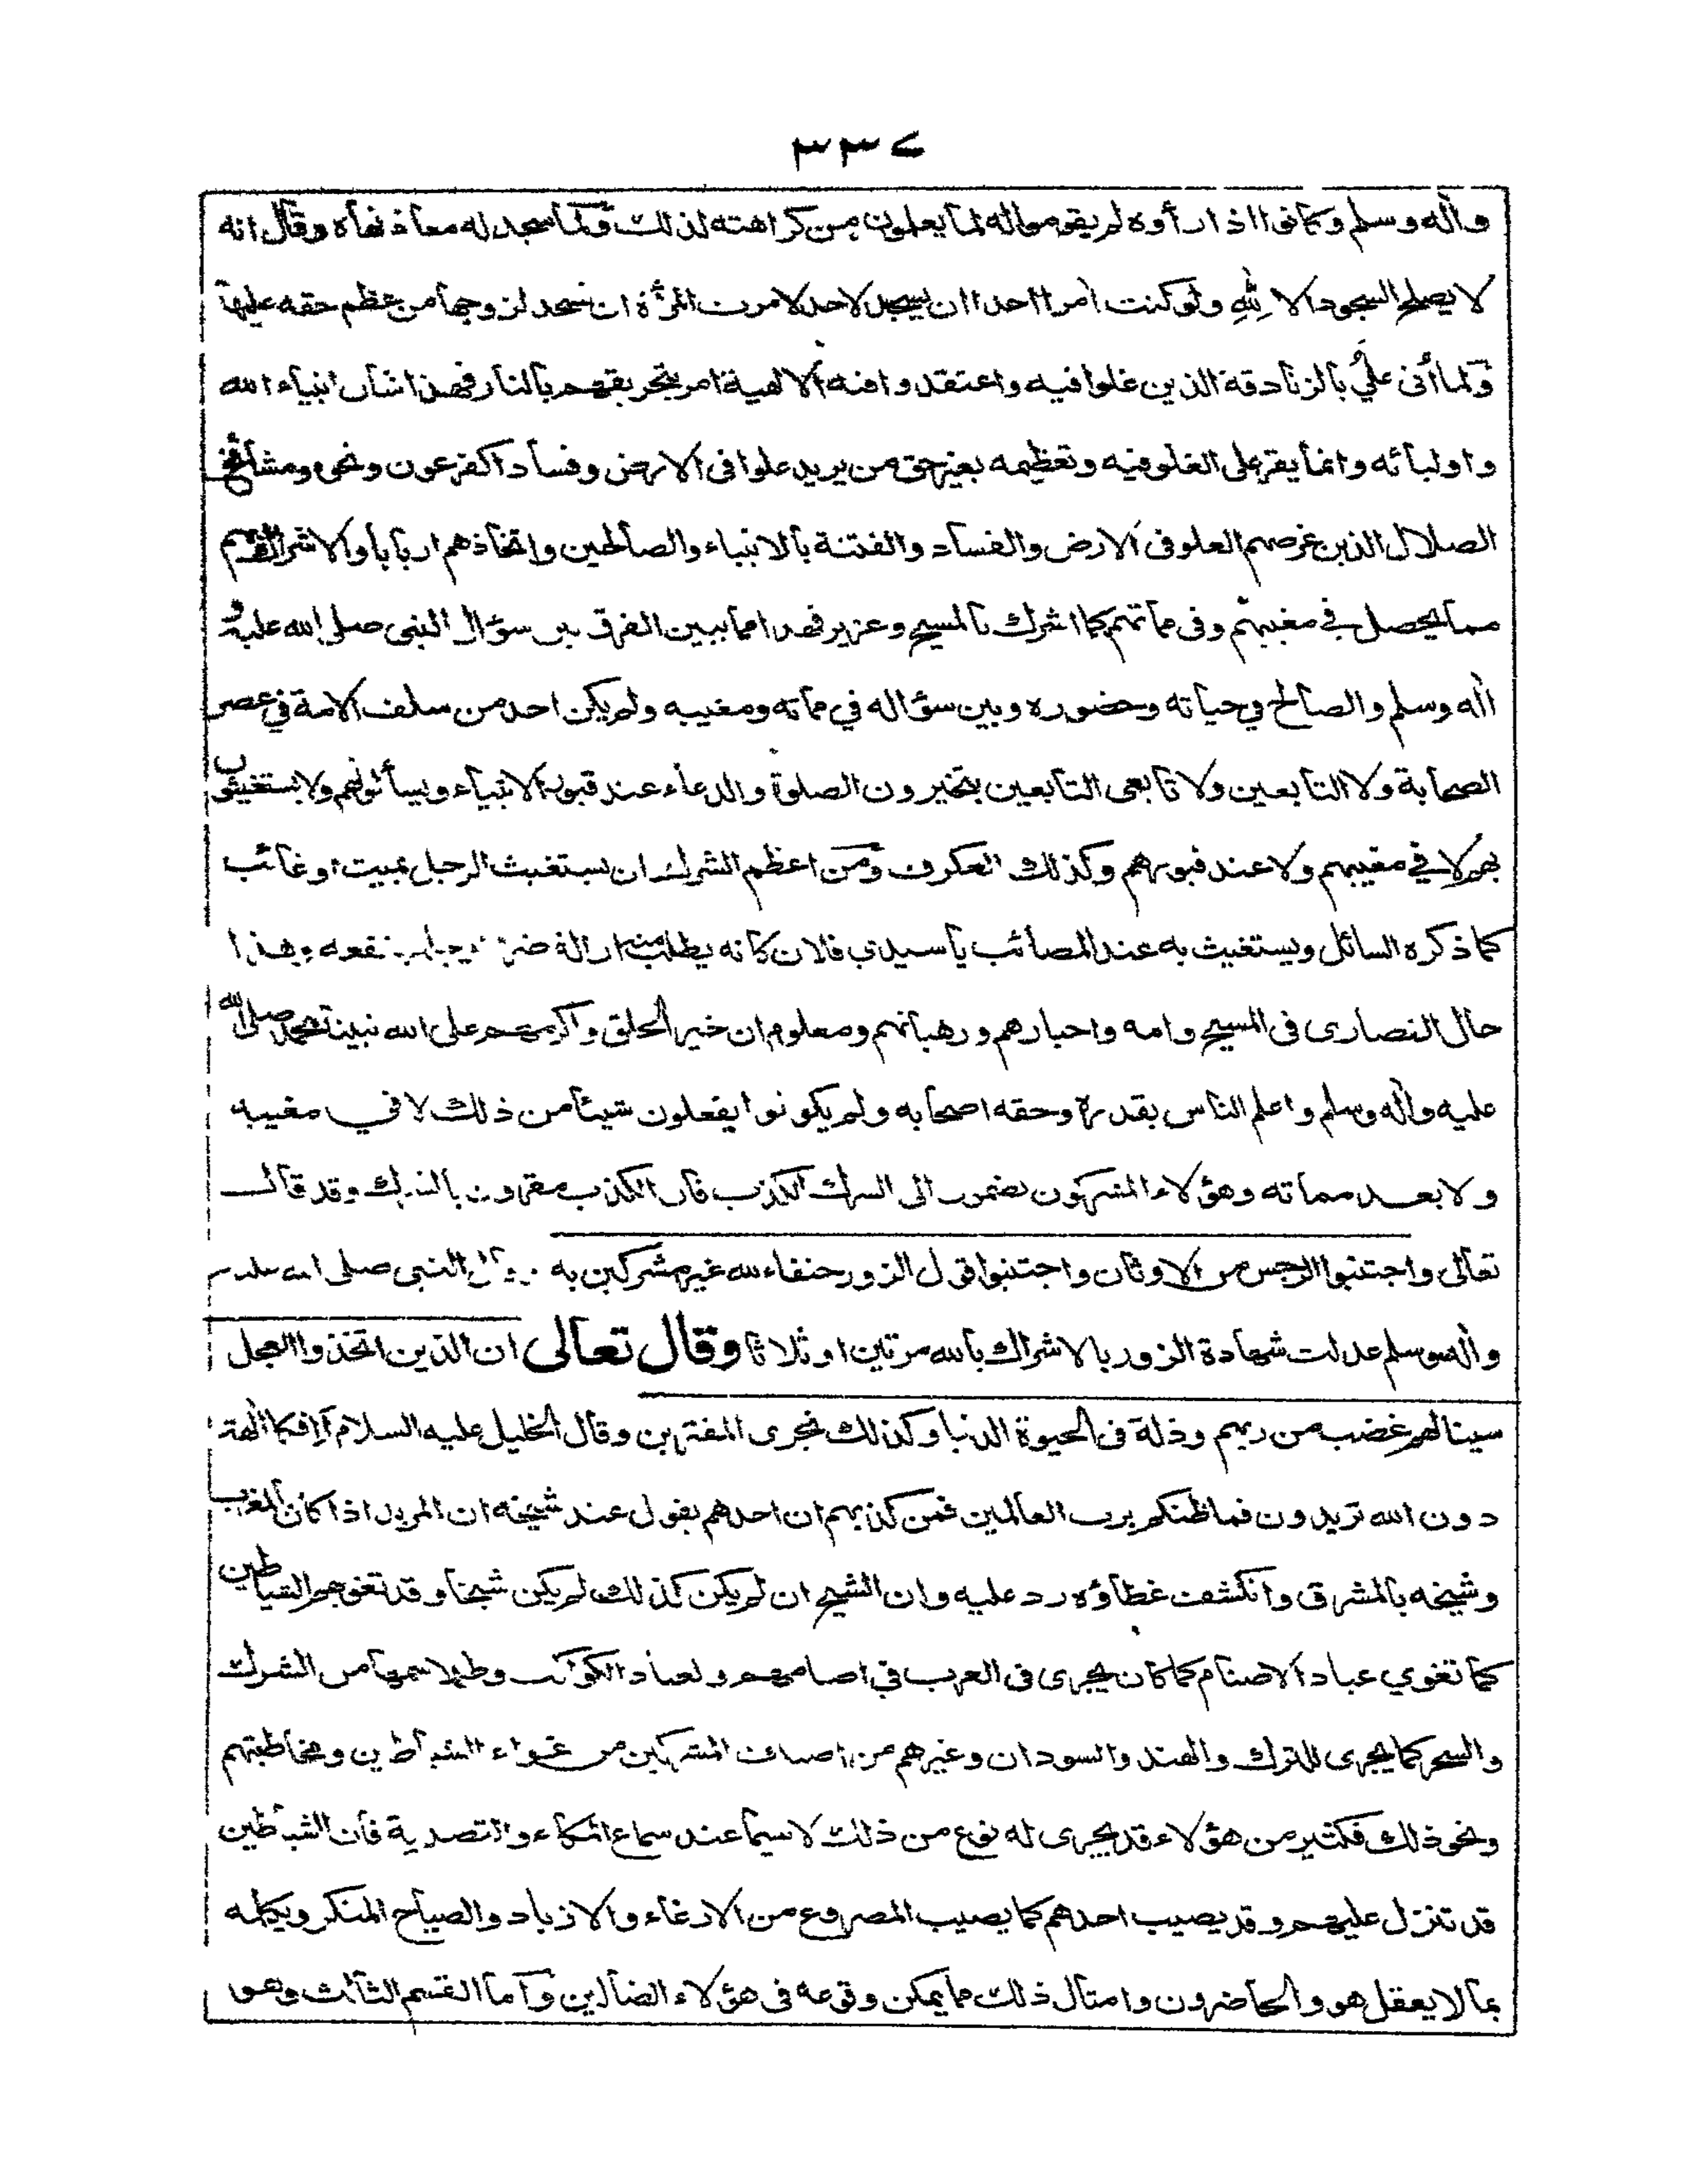 ٣٣٧
وآله وسلم وكانوا اذا رأوه لم يقوموا له لما يعلمون من كراهته لذلك ولما سجد له معاذ نهاه وقال انه
لا يصلح السجود الا لله ولو كنت امرا احدا ان يسجد لاحد لامرت المرأة ان تسجد لزوجها من عظم حقه عليها
ولما أتى علي بالزنادقة الذين غلوا فيه واعتقدوا فيه الالهية امر بتحريقهم بالنار فهذا شأن انبياء الله
واوليائه وانما يقر على الغلو فيه وتعظيمه بغير حق من يريد علوا فى الارض وفسادا كفرعون ونحوه ومشائخ
الضلال الذين غرضهم العلو فى الارض والفساد والفتنة بالانبياء والصالحين واتخاذهم اربابا والاشراك بهم
مما يحصل في مغيبهم وفى مماتهم كما اشرك بالمسيح وعزير فهذا مما يبين الفرق بين سؤال النبى صلى الله عليه و
آله وسلم والصالح في حياته وحضوره وبين سؤاله في مماته ومغيبه ولم يكن احد من سلف الامة في عصر
الصحابة ولا التابعين ولا تابعى التابعين يتخيرون الصلوة والدعاء عند قبور الانبياء ويسألونهم ولا يستغيثون
بهم لا في مغيبهم ولا عند قبورهم وكذلك العكوف ومن اعظم الشرك ان يستغيث الرجل بميت او غائب
كما ذكره السائل ويستغيث به عند المصائب يا سيدي فلان كانه يطلب منه ازالة ضره نفعه وهذا
حال النصارى فى المسيح وامه واحبارهم ورهبانهم ومعلوم ان خير الخلق واكرمهم على الله نبينا محمد صلى الله
عليه وآله وسلم واعلم الناس بقدره وحقه اصحابه ولم يكونوا يفعلون شيئا من ذلك لا في مغيبه
ولا بعد مماته وهؤلاء المشركون يضمون الى الشرك الكذب فان الكذب مقرون بالشرك وقد قال
تعالى واجتنبوا الرجس من الاوثان واجتنبوا قول الزور حنفاء لله غير مشركين به وقال النبى صلى الله عليه
وآله وسلم عدلت شهادة الزور بالاشراك بالله مرتين او ثلاثا وقال تعالى ان الذين اتخذوا العجل
سينالهم غضب من ربهم وذلة فى الحيوة الدنيا وكذلك نجزى المفترين وقال الخليل عليه السلام أإفكا آلهة
دون الله تريدون فما ظنكم برب العالمين فمن كذبهم ان احدهم يقول عند شيخه ان المريد اذا كان بالمغرب
وشيخه بالمشرق وانكشف غطاؤه رد عليه وان الشيخ ان لم يكن كذلك لم يكن شيخا وقد تغويهم الشياطين
كما تغوي عباد الاصنام كما كان يجرى فى العرب في اصنامهم ولعباد الكواكب وطلاسمها من الشرك
والسحر كما يجرى للترك والهند والسودان وغيرهم من اصناف المشركين من اغواء الشياطين ومخاطبتهم
ونحو ذلك فكثير من هؤلاء قد يجرى له نوع من ذلك لا سيما عند سماع المكاء والتصدية فان الشياطين
قد تنزل عليهم وقد يصيب احدهم كما يصيب المصروع من الارغاء والازباد والصياح المنكر ويكلمه
بما لا يعقل هو والحاضرون وامثال ذلك مما يمكن وقوعه فى هؤلاء الضالين واما القسم الثالث وهو